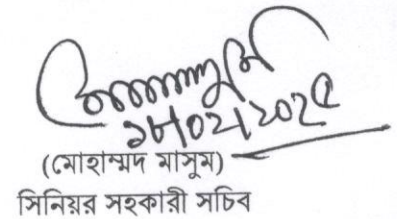 ১৮।০২।২০২৫
(মোহাম্মদ মাসুম)
সিনিয়র সহকারী সচিব